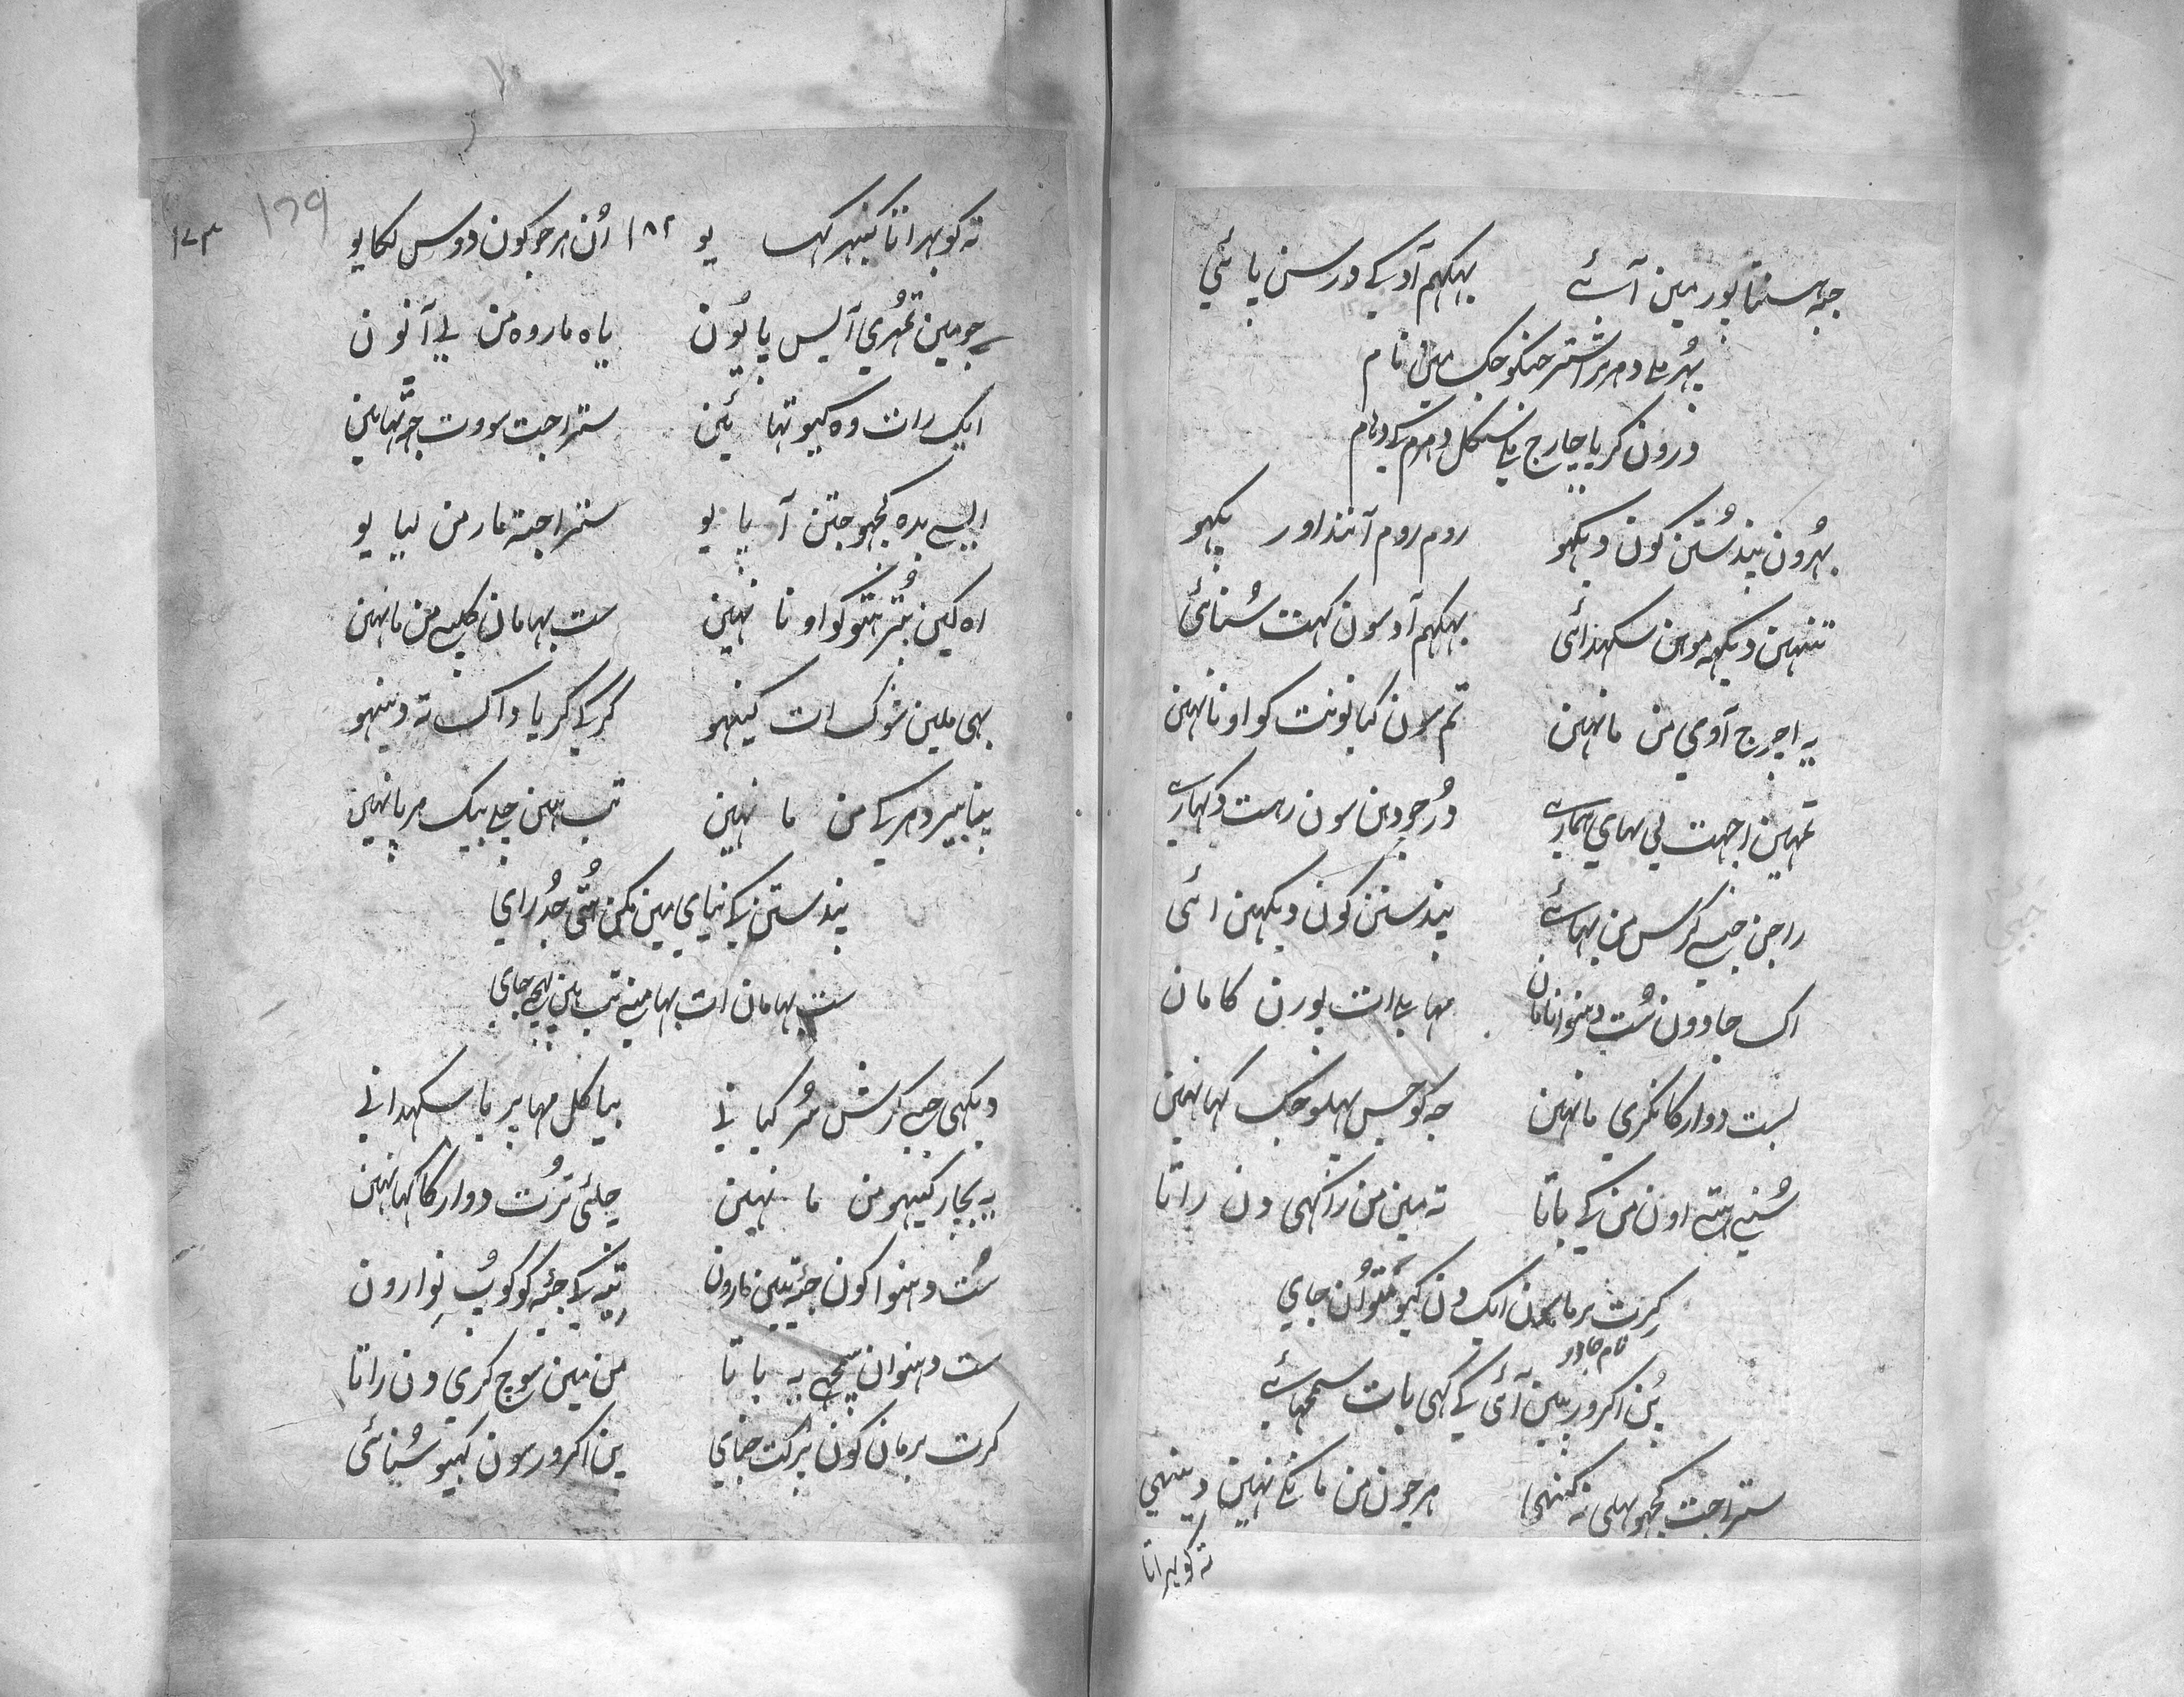 جبہ ہستناپور مین آئے بہیکہم آد کے درسن پائی
بہُر ملے دہرتراشتر جنکو جگ مین نام
درون کرپاچارج ملے سکل دہرم کے دہام
بہُرون پنڈ سُتن کون دیکہو روم روم آنند اور پکہو
تنہین دیکہہ موہن سکہدائی بہیکہم آد سون کہت سُنائی
یہ اچرج آوی من مانہین تم سون گیانونت کواو نانہین
تمہین اچہت بی سہای ہماری دُرجودہن سون رہت دکہاری
راجن جیسے کرسن من بہائے پنڈ ستن کون دیکہن ائی
اک جادون سُت دہنوا نامان مہا بلے ات پورن کامان
بست دوارکا نگری مانہین جہ کو جس پہیلو جگ کہانہین
سُنیے ہتے اون من کے باتا تہ مین من راکہی دن راتا
کرت برما سون ایک دن کہیو مُتو اُن جای
نام جادو
پُن اکرور پین آئی کے کہی بات سمجہائے
ستراجت کچہو بہلی نہ کینہی ہر جون من مانگے نہین دینہی
تہ کو بہراتا
تہ کو بہراتا کینہر کہایو ۱۸۲ اُن ہر جو کون دوس لگایو
۱۷۳ 179
جو مین تمُہری آیس پاوُن یاہ مار وہ من لی آنون
ایک رات وہ گیو تہائین ستراجت سووت جہّہامین
ایسے بدہ کچہو جتن آپایو ستراجتہ مار من لیایو
اہ کین پُتر ہتو کواو نانہین ست بہامان کلپے من مانہین
بہی ملین سوک ات کینہو گر کے کریا داگ تہ دینہو
پتا بیر دہر کے من مانہین تب ہین چلے بیگ ہر پانہین
پنڈ ستن کے نیای مین مگن ہُتی جدُرای
ست بہامان ات بہامنے تب ہین پہنچے جای
دیکہی جب کرشن مُر گیانی بیاکل مہا پریا سکہدانی
یہ بچار کینہو من مانہین چلئی ترُت دوارکا کہانہین
ست دہنوا کون جئتہین مارون تیہ کے جئہ کو کوپ نوارون
ست دہنوان سُنے یہ باتا من مین سوچ کری دن راتا
کرت برمان کون پرگٹ جنای پن اکرور سون کہیو سُنائی